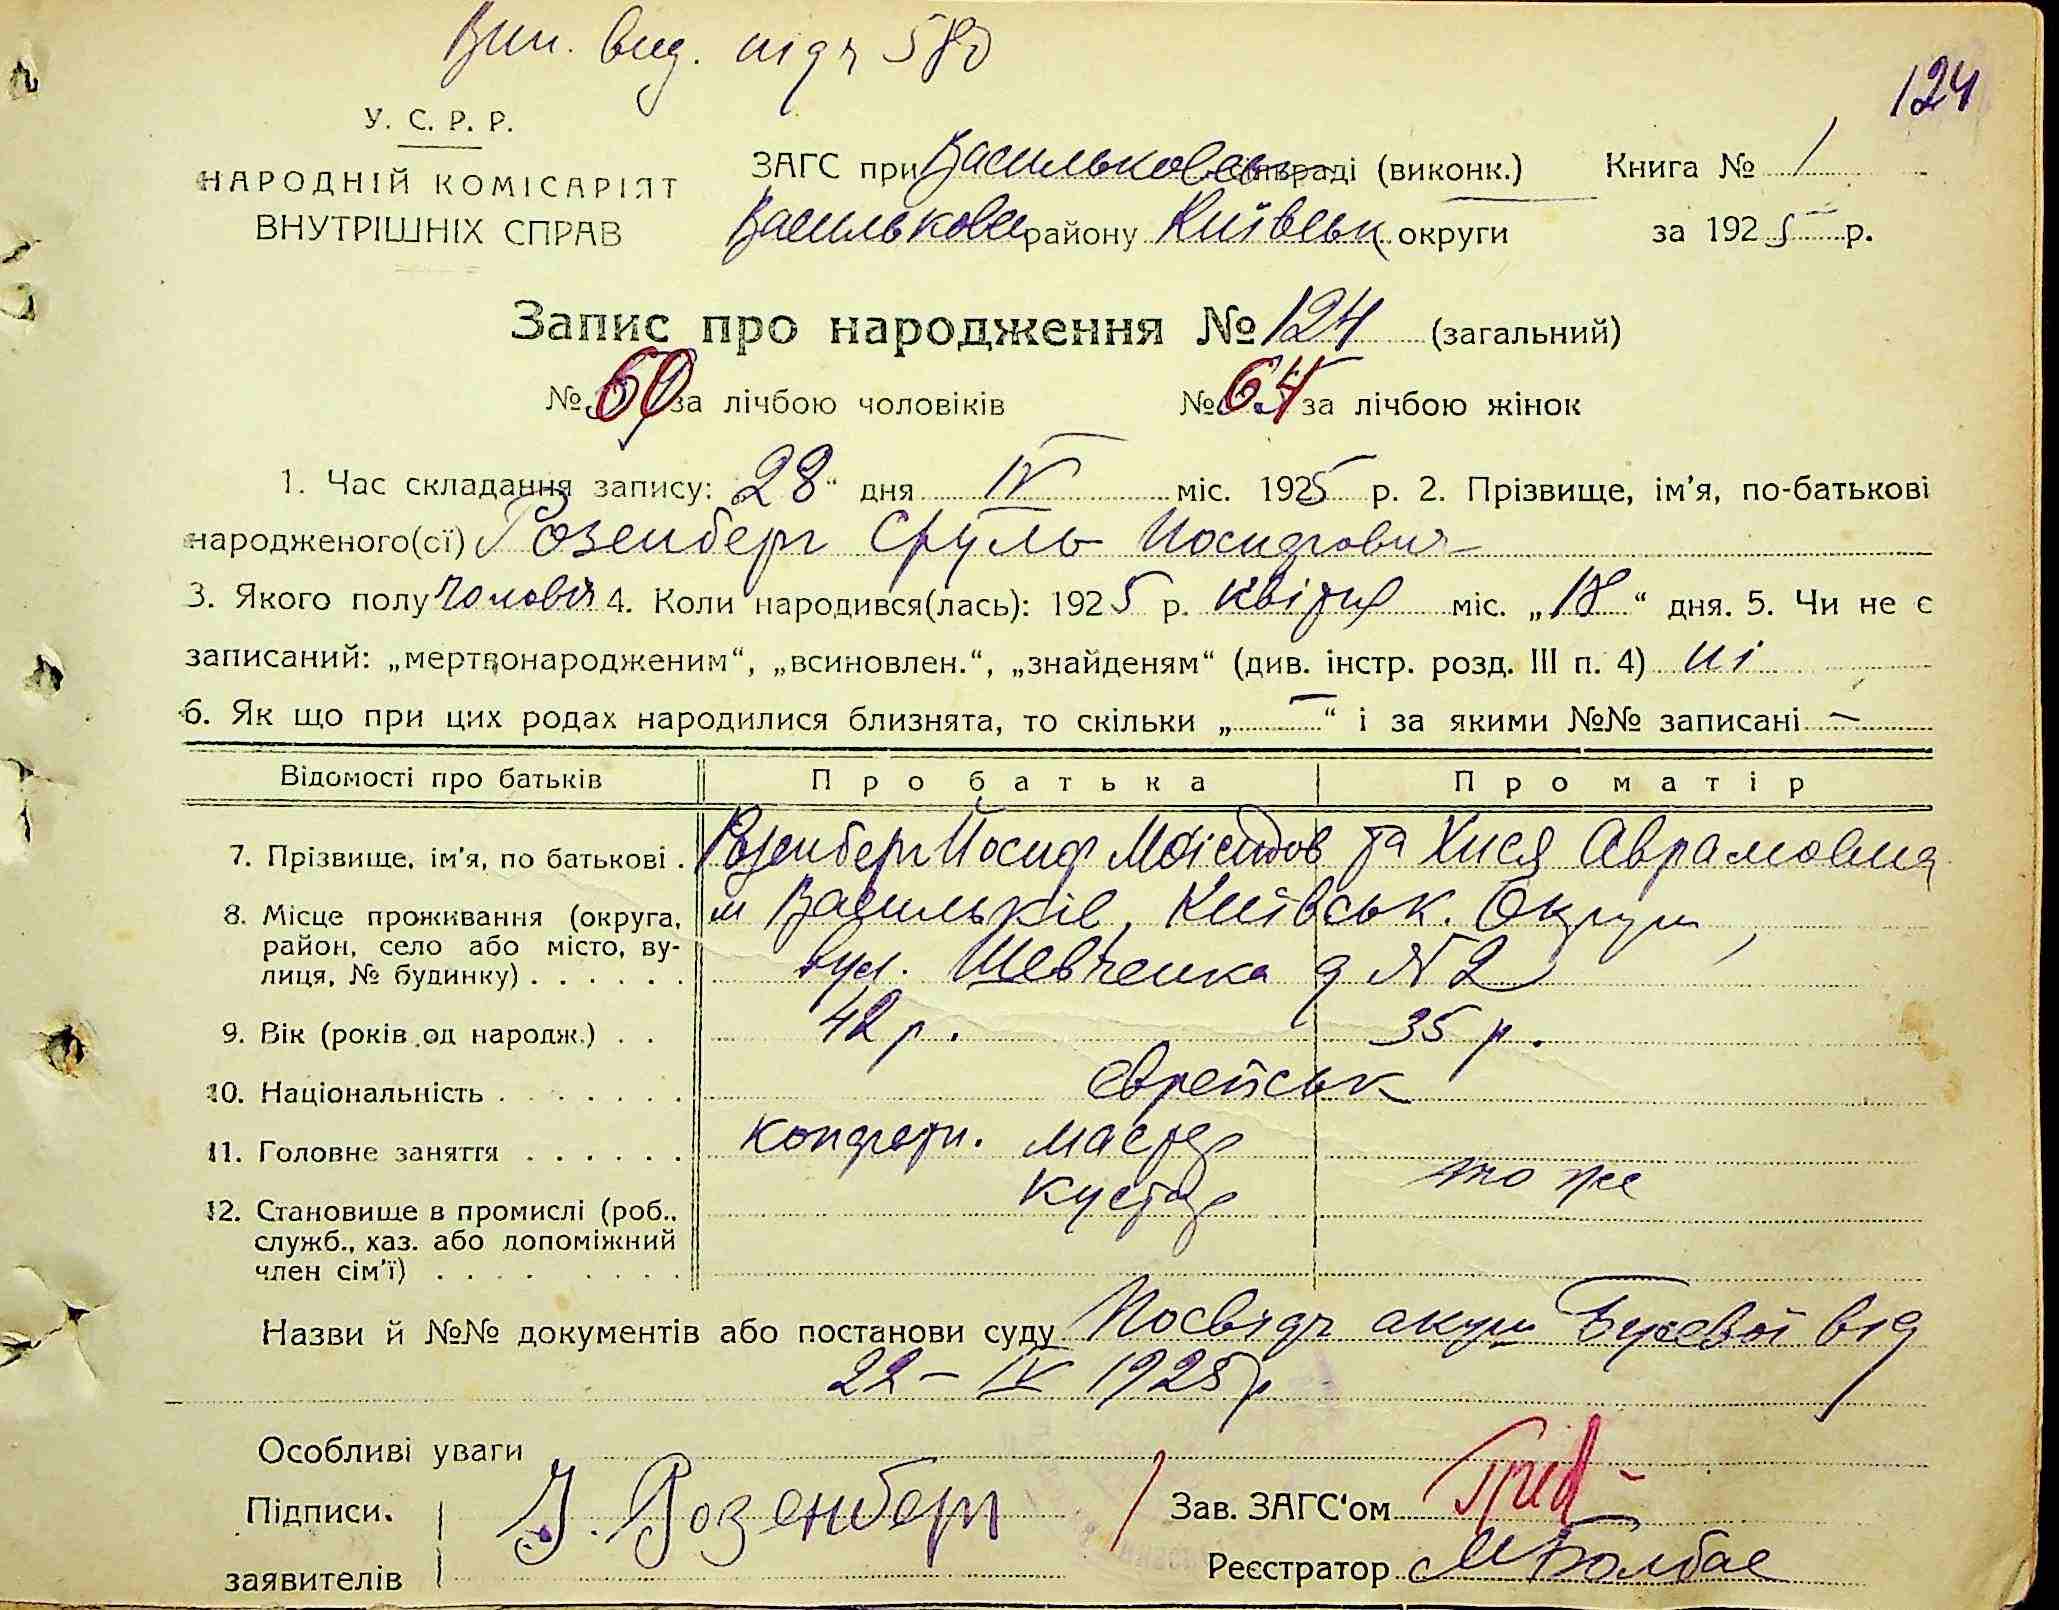 Вип. вид. підч 580
124
У. С. Р. Р.
НАРОДНІЙ КОМІСАРІЯТ
ВНУТРІШНІХ СПРАВ
ЗАГС при Васильковськ міськраді (виконк.) Книга № 1
Васильковск району Київськ округи за 1925 р.
Запис про народження № 124 (загальний)
№ 60 за лічбою чоловіків № 64 за лічбою жінок
1. Час складання запису: „28“ дня IV міс. 1925 р. 2. Прізвище, ім'я, по-батькові
народженого(сї) Розенберг Сруль Йосифович
3. Якого полу чоловіч 4. Коли народився(лась): 1925 р. квітня міс. „18“ дня. 5. Чи не є
записаний: „мертвонародженим“, „всиновлен.“, „знайденям“ (див. інстр. розд. III п. 4) ні
6. Як що при цих родах народилися близнята, то скільки „—“ і за якими №№ записані —
Відомості про батьків Про батька Про матір
7. Прізвище, ім'я, по батькові . Розенберг Йосиф Моісейов та Хися Аврамовна
8. Місце проживання (округа, м Васильків, Київськ. Округи,
район, село або місто, ву-
лиця, № будинку) . . . . . . вул. Шевченка д № 2
9. Вік (років од народж.) . . 42 р. 35 р.
10. Національність . . . . . . . єврейськ
11. Головне заняття . . . . . . конфетн. мастер то же
12. Становище в промислі (роб., кустар
служб., хаз. або допоміжний
член сім'ї) . . . . . . . .
Назви й №№ документів або постанови суду Посвідч акуш від
22 – IV 1925 р
Особливі уваги
Підписи. Й. Розенберг Зав. ЗАГС'ом
заявителів Реєстратор